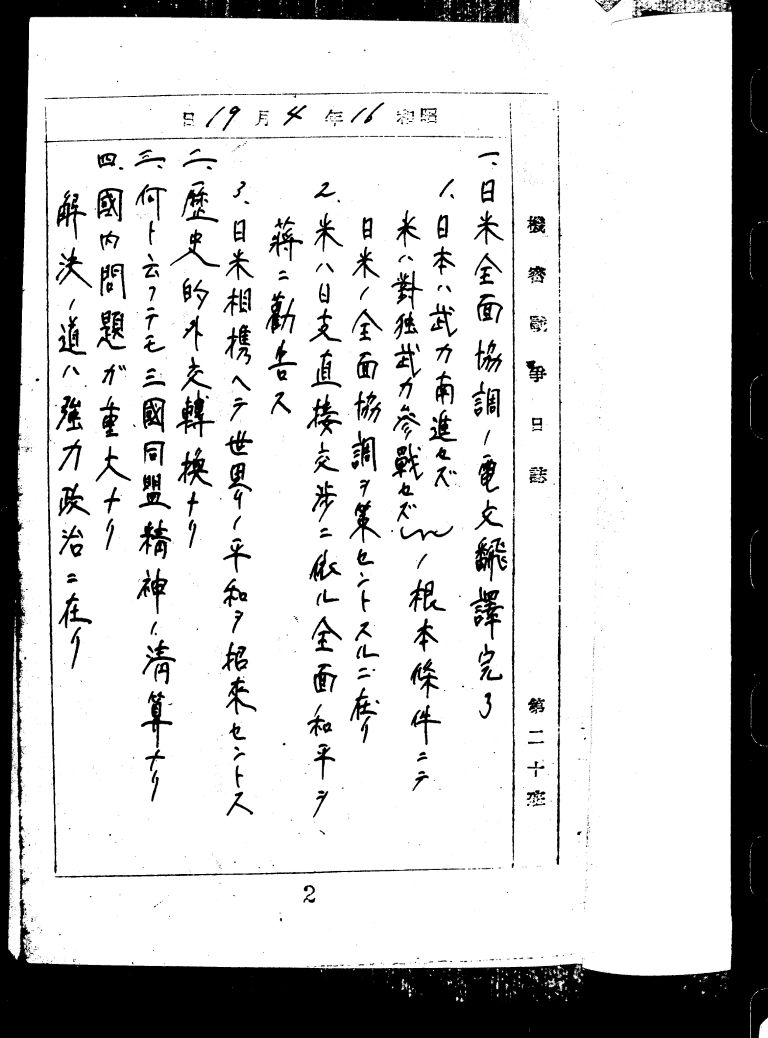 機密戰爭日誌 第二十班
昭和16年4月19日
一、日米全面協調ノ電文飜譯完了
1、日本ハ武力南進セズ
米ハ對独武力參戰セズ ノ根本條件ニテ
日米ノ全面協調ヲ策セントスルニ在リ
2、米ハ日支直接交渉ニ依ル全面和平ヲ、
蒋ニ勸告ス
3、日米相携ヘテ世界ノ平和ヲ招來セントス
二、歴史的外交轉換ナリ
三、何ト云フテモ三國同盟精神ノ淸算ナリ
四、國内問題ガ重大ナリ
解決ノ道ハ強力政治ニ在リ
2